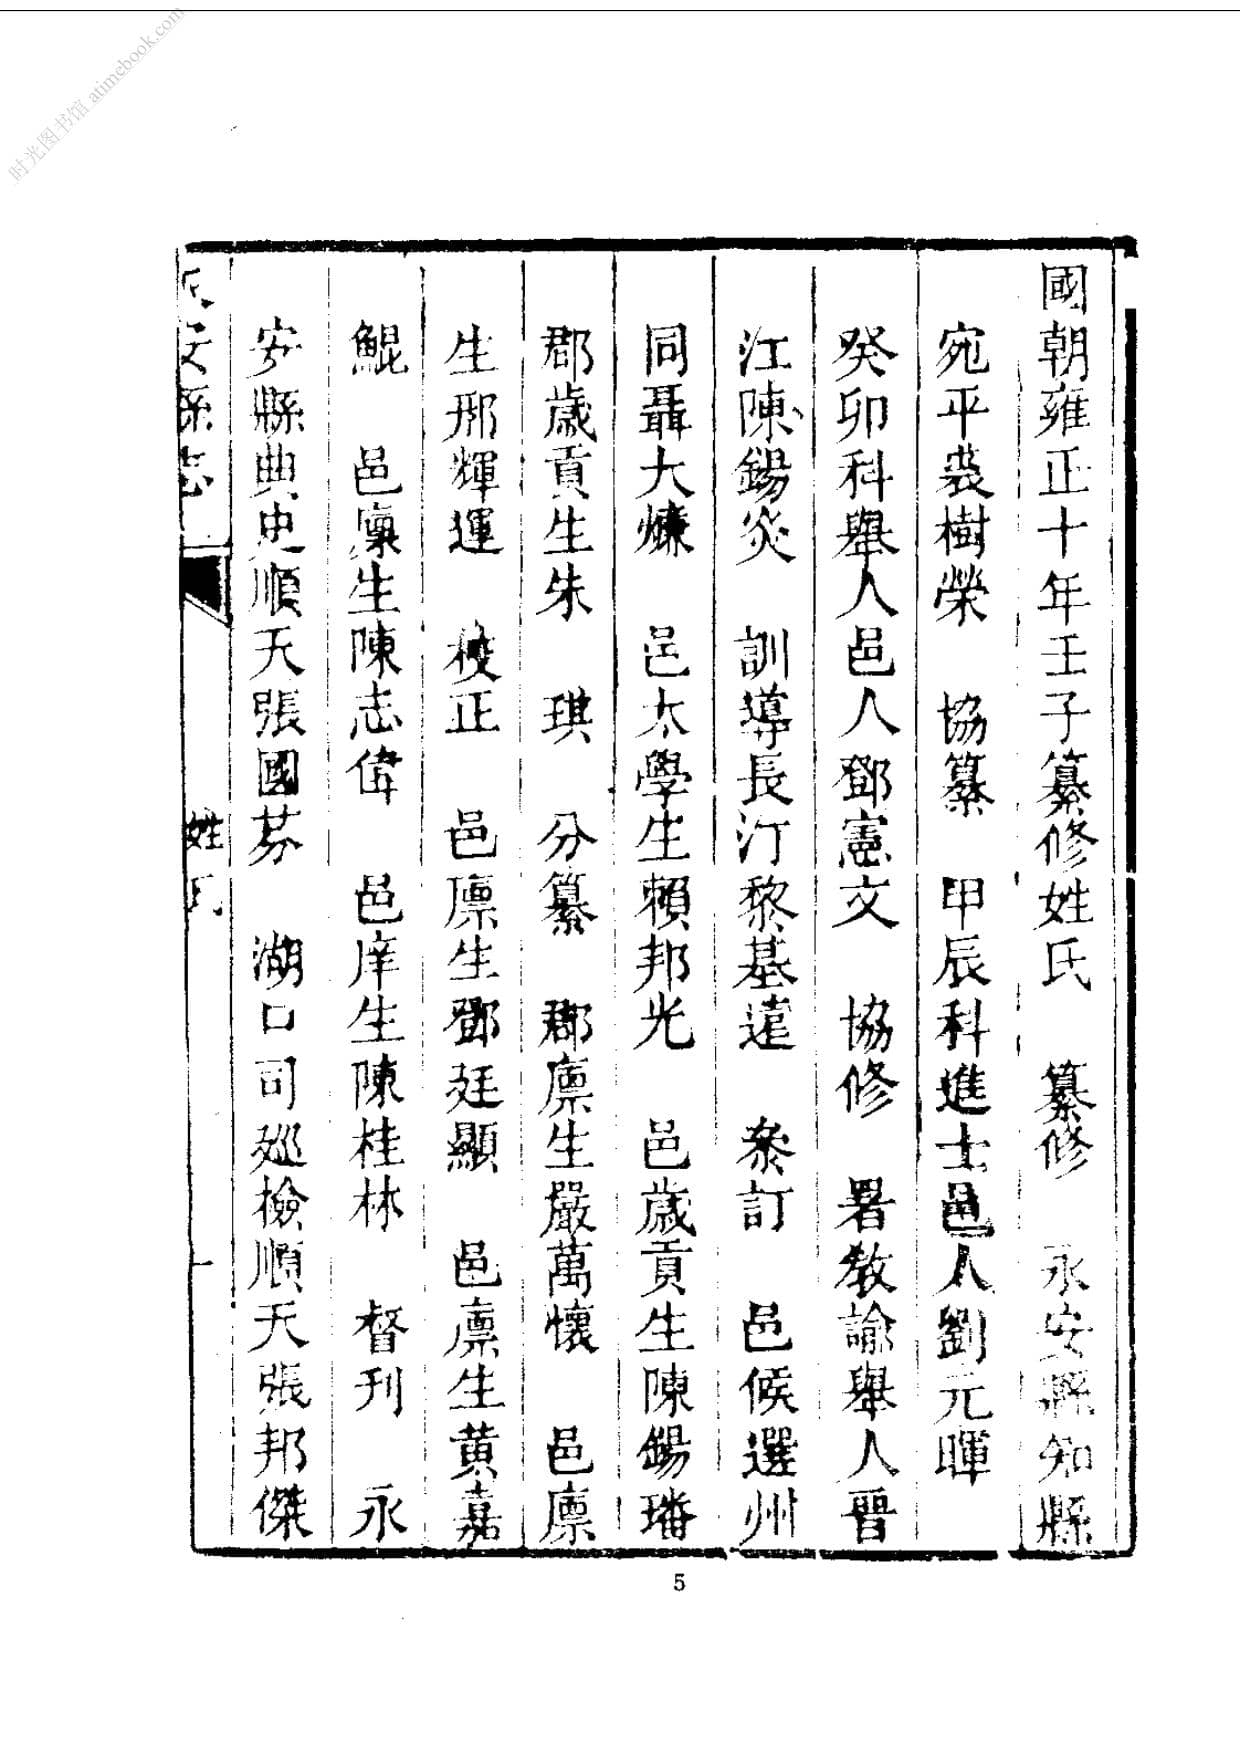 國朝雍正十年壬子纂修姓氏　纂修　永安縣知縣
宛平裘樹榮　協纂　甲辰科進士邑人劉元暉
癸卯科舉人邑人鄧憲文　協修　署教諭舉人晉
江陳錫炎　訓導長汀黎基遠　叅訂　邑候選州
同聶大㷳　邑太學生賴邦光　邑歲貢生陳錫璠
郡歲貢生朱　琪　分纂　郡廪生嚴萬懷　邑廪
生邢輝運　校正　邑廪生鄧廷顯　邑廪生黄嘉
鯤　邑廪生陳志偉　邑庠生陳桂林　督刊　永
安縣典史順天張國芬　湖口司廵檢順天張邦傑
永安縣志　姓氏　一
5
时光图书馆 atimebook.com